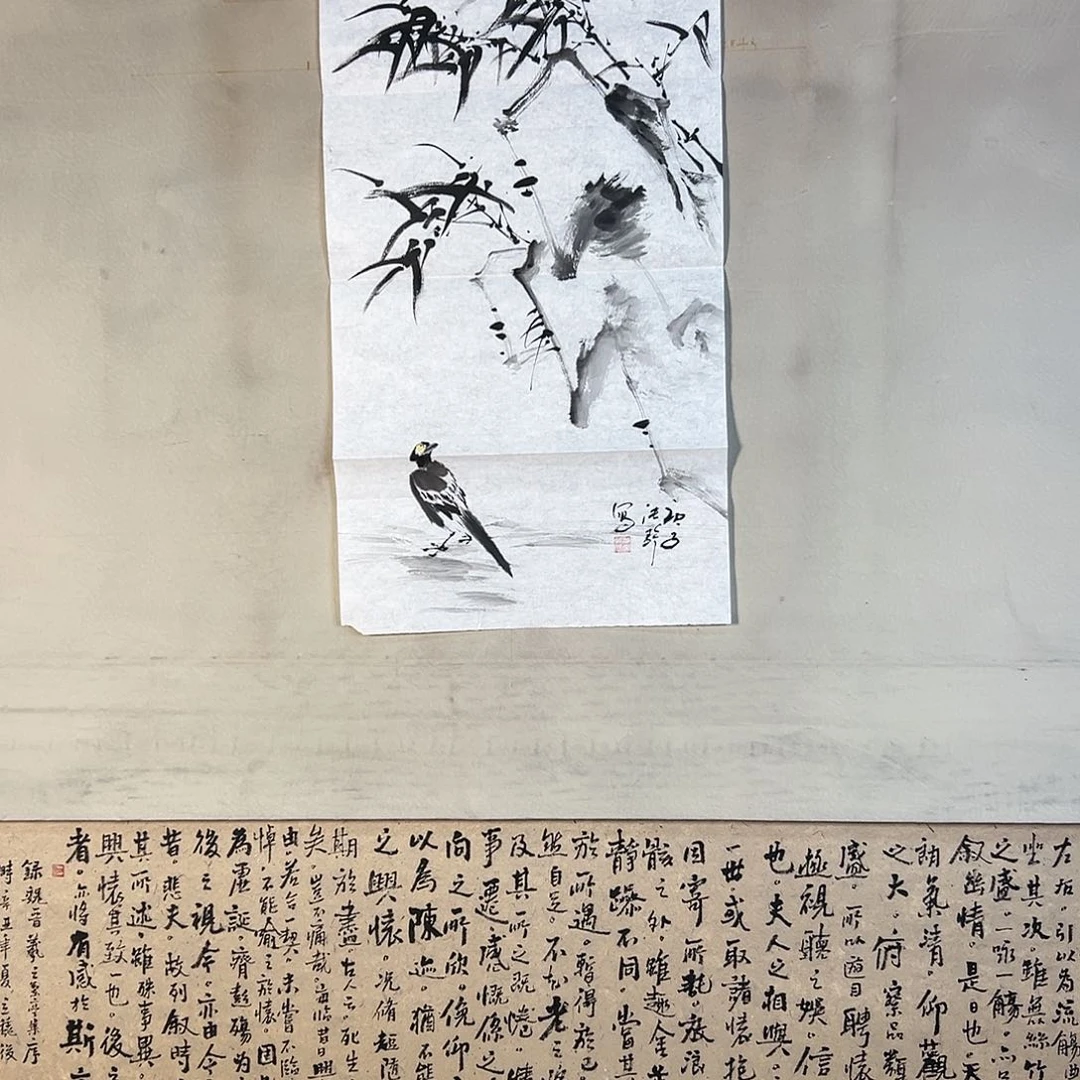 庚子
寫
左右。引以為流觴曲
坐其次。雖無絲竹
之盛。一咏一觴。亦
叙幽情。是日也。天
朗氣清。仰觀
之大。俯察品類
盛。所以遊目騁懷
極視聽之娛。信
也。夫人之相與。
一世。或取諸懷抱
因寄所託。放浪
骸之外。雖趣舍萬
靜躁不同。當其
於所遇。暫得於己
然自足。不知老之
及其所之既惓。情
事遷。感慨係之
向之所欣。俛仰
以為陳迹。猶不能
之興懷。況脩短隨
期於盡。古人云。死生
矣。豈不痛哉。每臨昔日興
由。若合一契。未嘗不臨
悼。不能喻之於懷。固
為虛誕。齊彭殤為
後之視今。亦由今
昔。悲夫。故列叙時
其所述。雖殊事異。
興懷其致一也。後之
者。亦將有感於斯
錄魏晉羲之蘭亭集序
時辛丑年夏